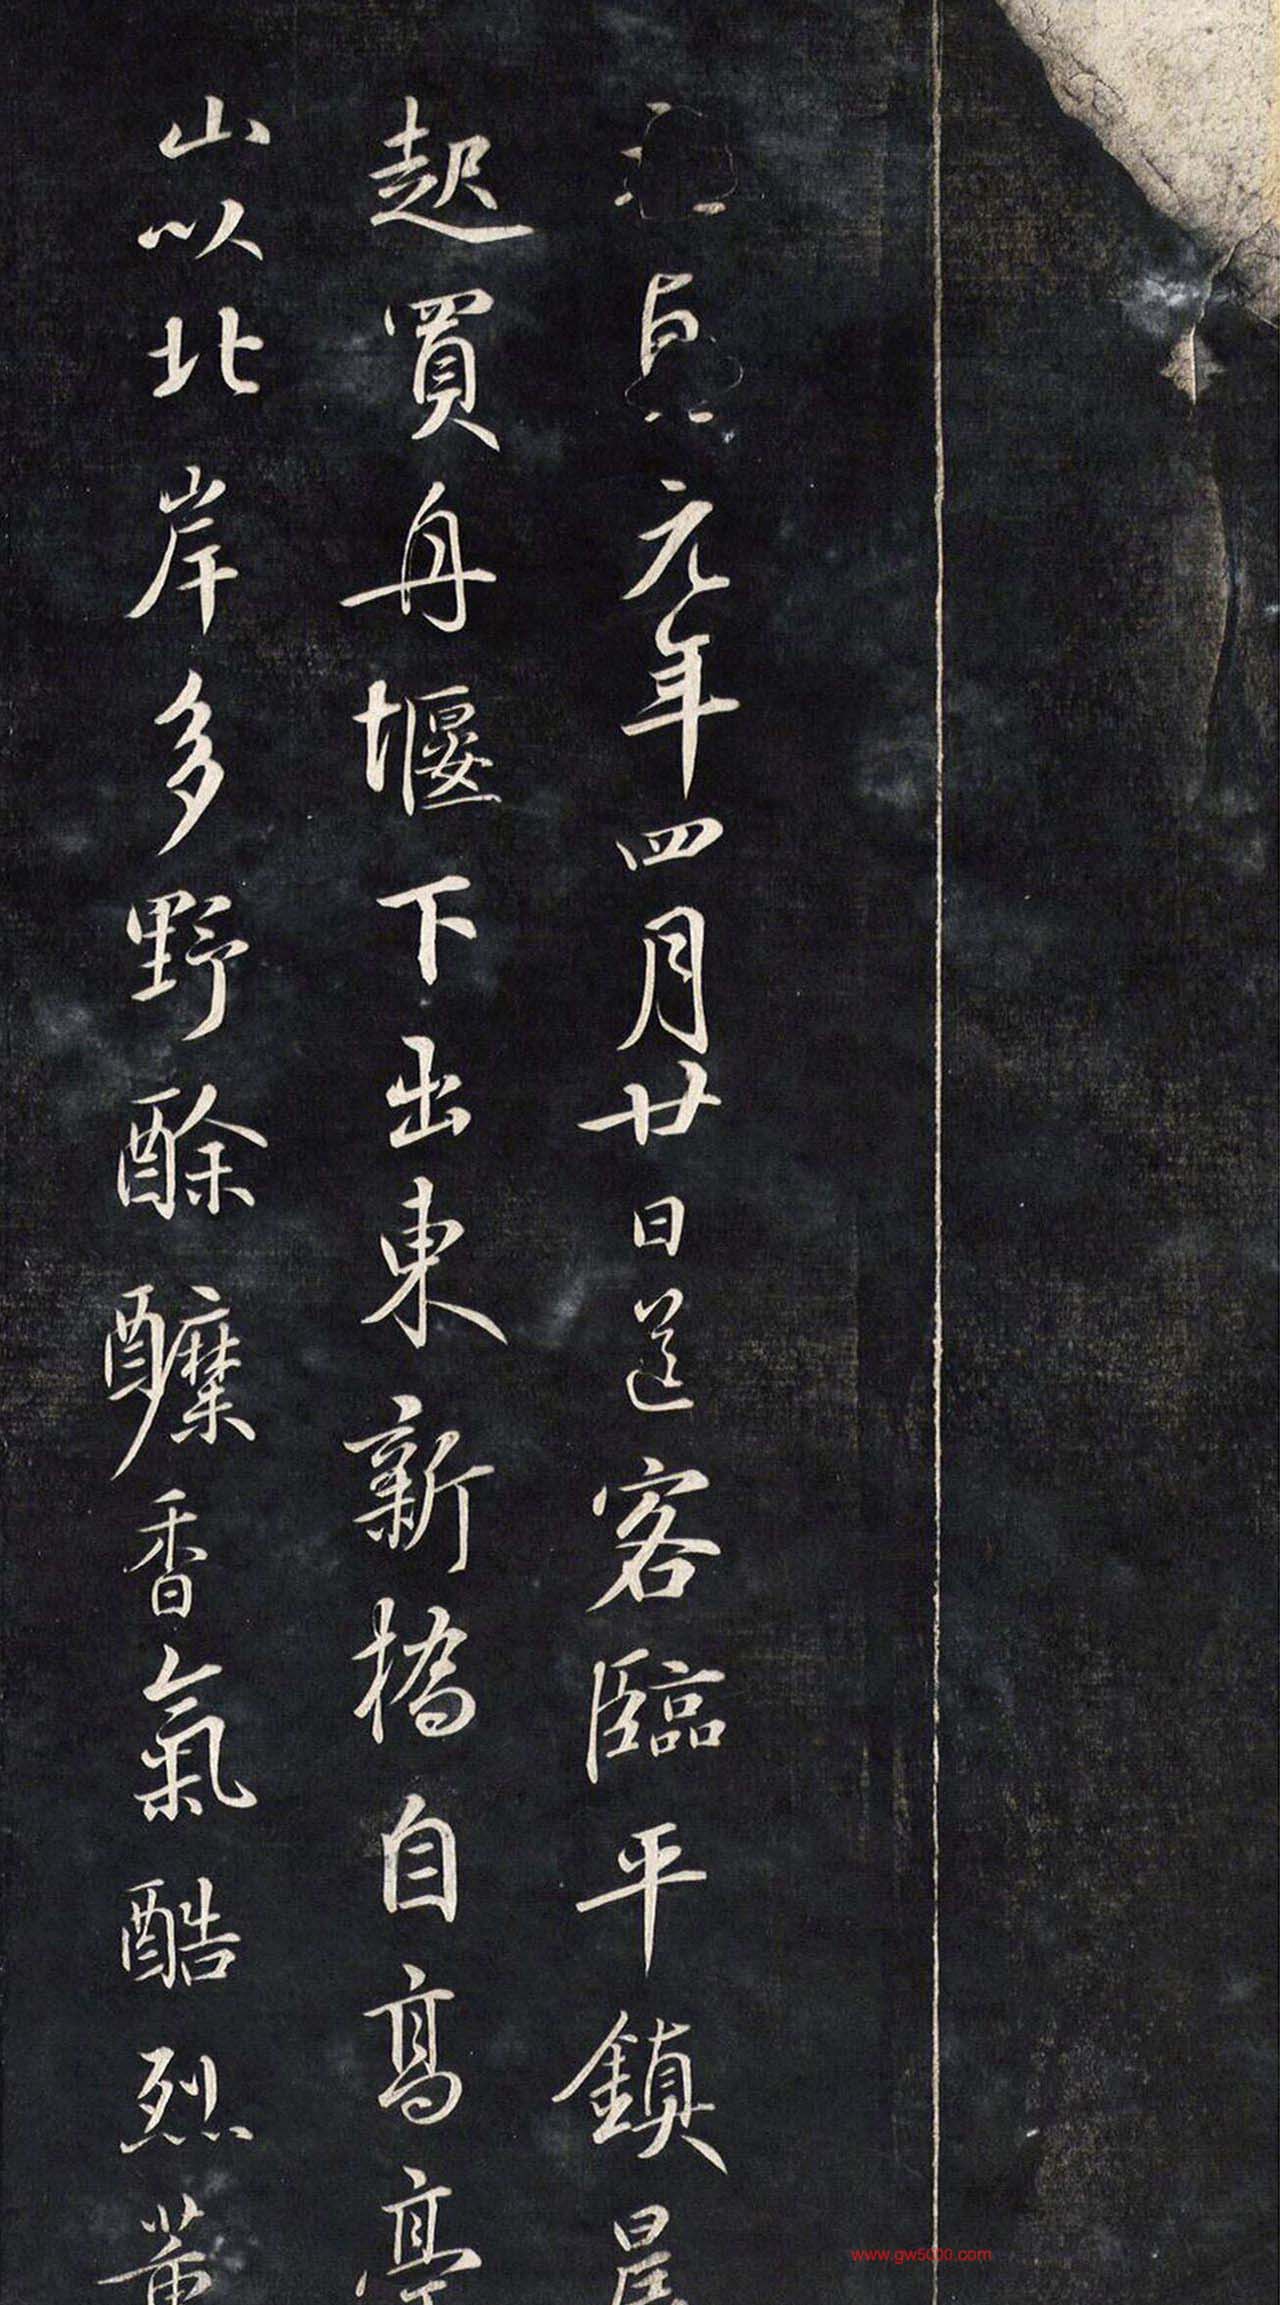 貞元年四月廿日送客臨平鎮晨
起買舟堰下出東新橋自高亭
山以北岸多野酴醾香氣酷烈薰
www.gw5000.com